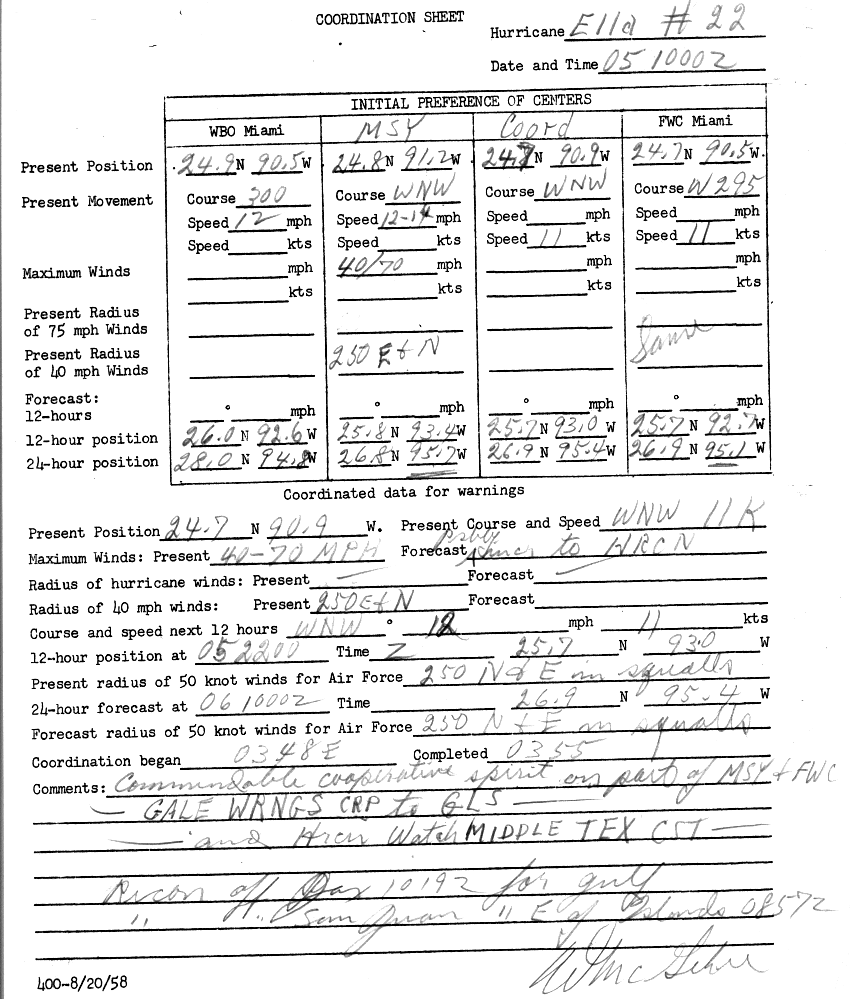 COORDINATION SHEET
Hurricane Ella # 22
Date and Time 051000Z
INITIAL PREFERENCE OF CENTERS
WBO Miami MSY Coord FWC Miami
Present Position 24.9 N 90.5 W 24.8 N 91.2 W 24.7 N 90.9 W 24.7 N 90.5 W.
Present Movement Course 300 Course WNW Course WNW Course W 295
Speed 12 mph Speed 12-14 mph Speed mph Speed mph
Speed kts Speed kts Speed 11 kts Speed 11 kts
Maximum Winds mph 40/70 mph mph mph
kts kts kts kts
Present Radius
of 75 mph Winds
Same
Present Radius 250 E & N
of 40 mph Winds
Forecast:
12-hours ° mph ° mph ° mph ° mph
12-hour position 26.0 N 92.6 W 25.8 N 93.4 W 25.7 N 93.0 W 25.7 N 92.7 W
24-hour position 28.0 N 94.8 W 26.8 N 95.7 W 26.9 N 95.4 W 26.9 N 95.1 W
Coordinated data for warnings
Present Position 24.7 N 90.9 W. Present Course and Speed WNW 11 K
Maximum Winds: Present 40-70 MPH Forecast psbly to HRCN
Radius of hurricane winds: Present Forecast
Radius of 40 mph winds: Present 250 E & N Forecast
Course and speed next 12 hours WNW ° 12 mph 11 kts
12-hour position at 052200 Time Z 25.7 N 93.0 W
Present radius of 50 knot winds for Air Force 250 N & E in squalls
24-hour forecast at 061000Z Time 26.9 N 95.4 W
Forecast radius of 50 knot winds for Air Force 250 N & E in squalls
Coordination began 0348E Completed 0355
Comments: Commendable cooperative spirit on part of MSY & FWC
— GALE WRNGS CRP to GLS —
— and Hrcn Watch MIDDLE TEX CST —
Recon off 1019Z for gulf
" " San Juan " E of Islands 0857Z
400-8/20/58